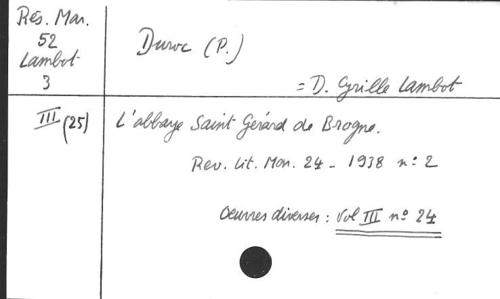 Rés. Mar.
52
Lambot
3
Duroc (P.)
= D. Cyrille Lambot
III (25)
L'abbaye Saint Gérard de Brogne.
Rev. Lit. Mon. 24 - 1938 n° 2
Oeuvres diverses : Vol III n° 24